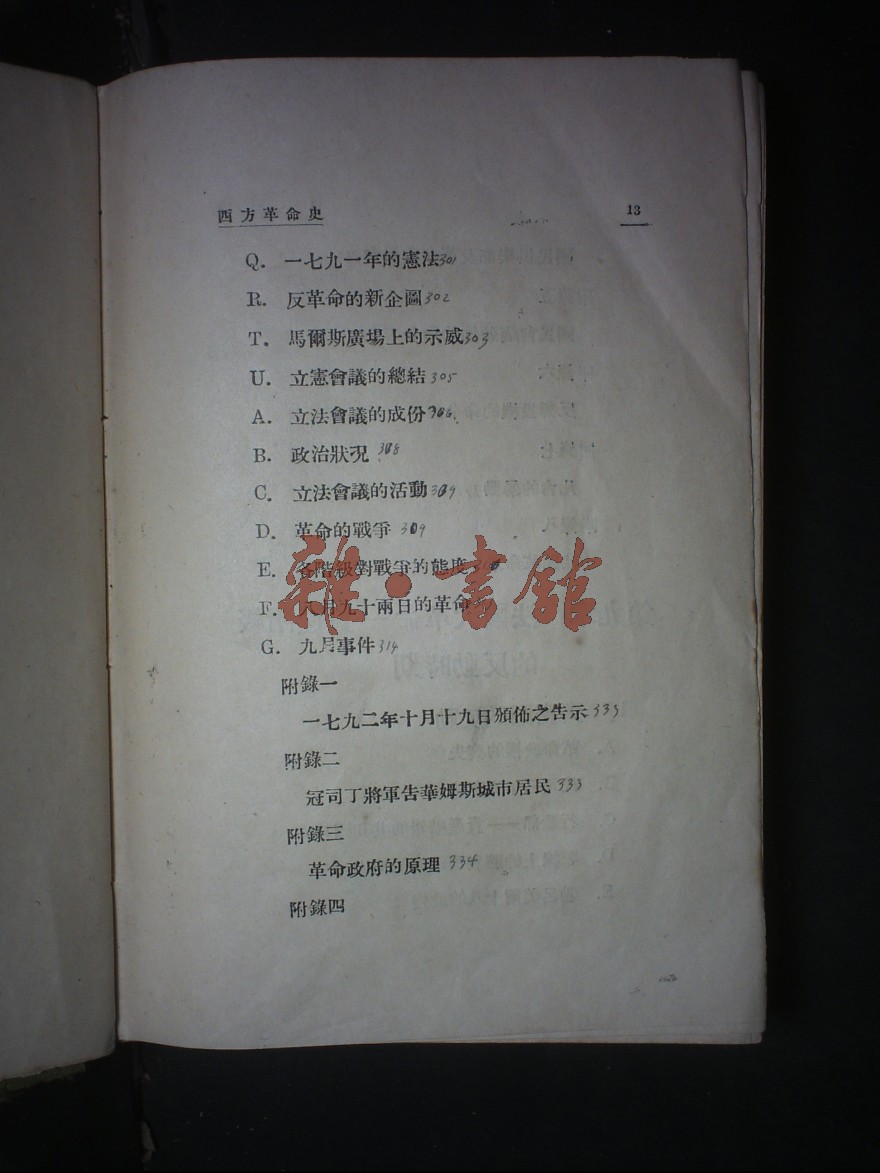 西方革命史 13
Q. 一七九一年的憲法301
R. 反革命的新企圖302
T. 馬爾斯廣場上的示威303
U. 立憲會議的總結305
A. 立法會議的成份306
B. 政治狀況 308
C. 立法會議的活動309
D. 革命的戰爭 309
E. 各階級對戰爭的態度310
F. 八月九十兩日的革命
G. 九月事件314
附錄一
一七九二年十月十九日頒佈之告示333
附錄二
冠司丁將軍告華姆斯城市居民333
附錄三
革命政府的原理334
附錄四
雜·書舘